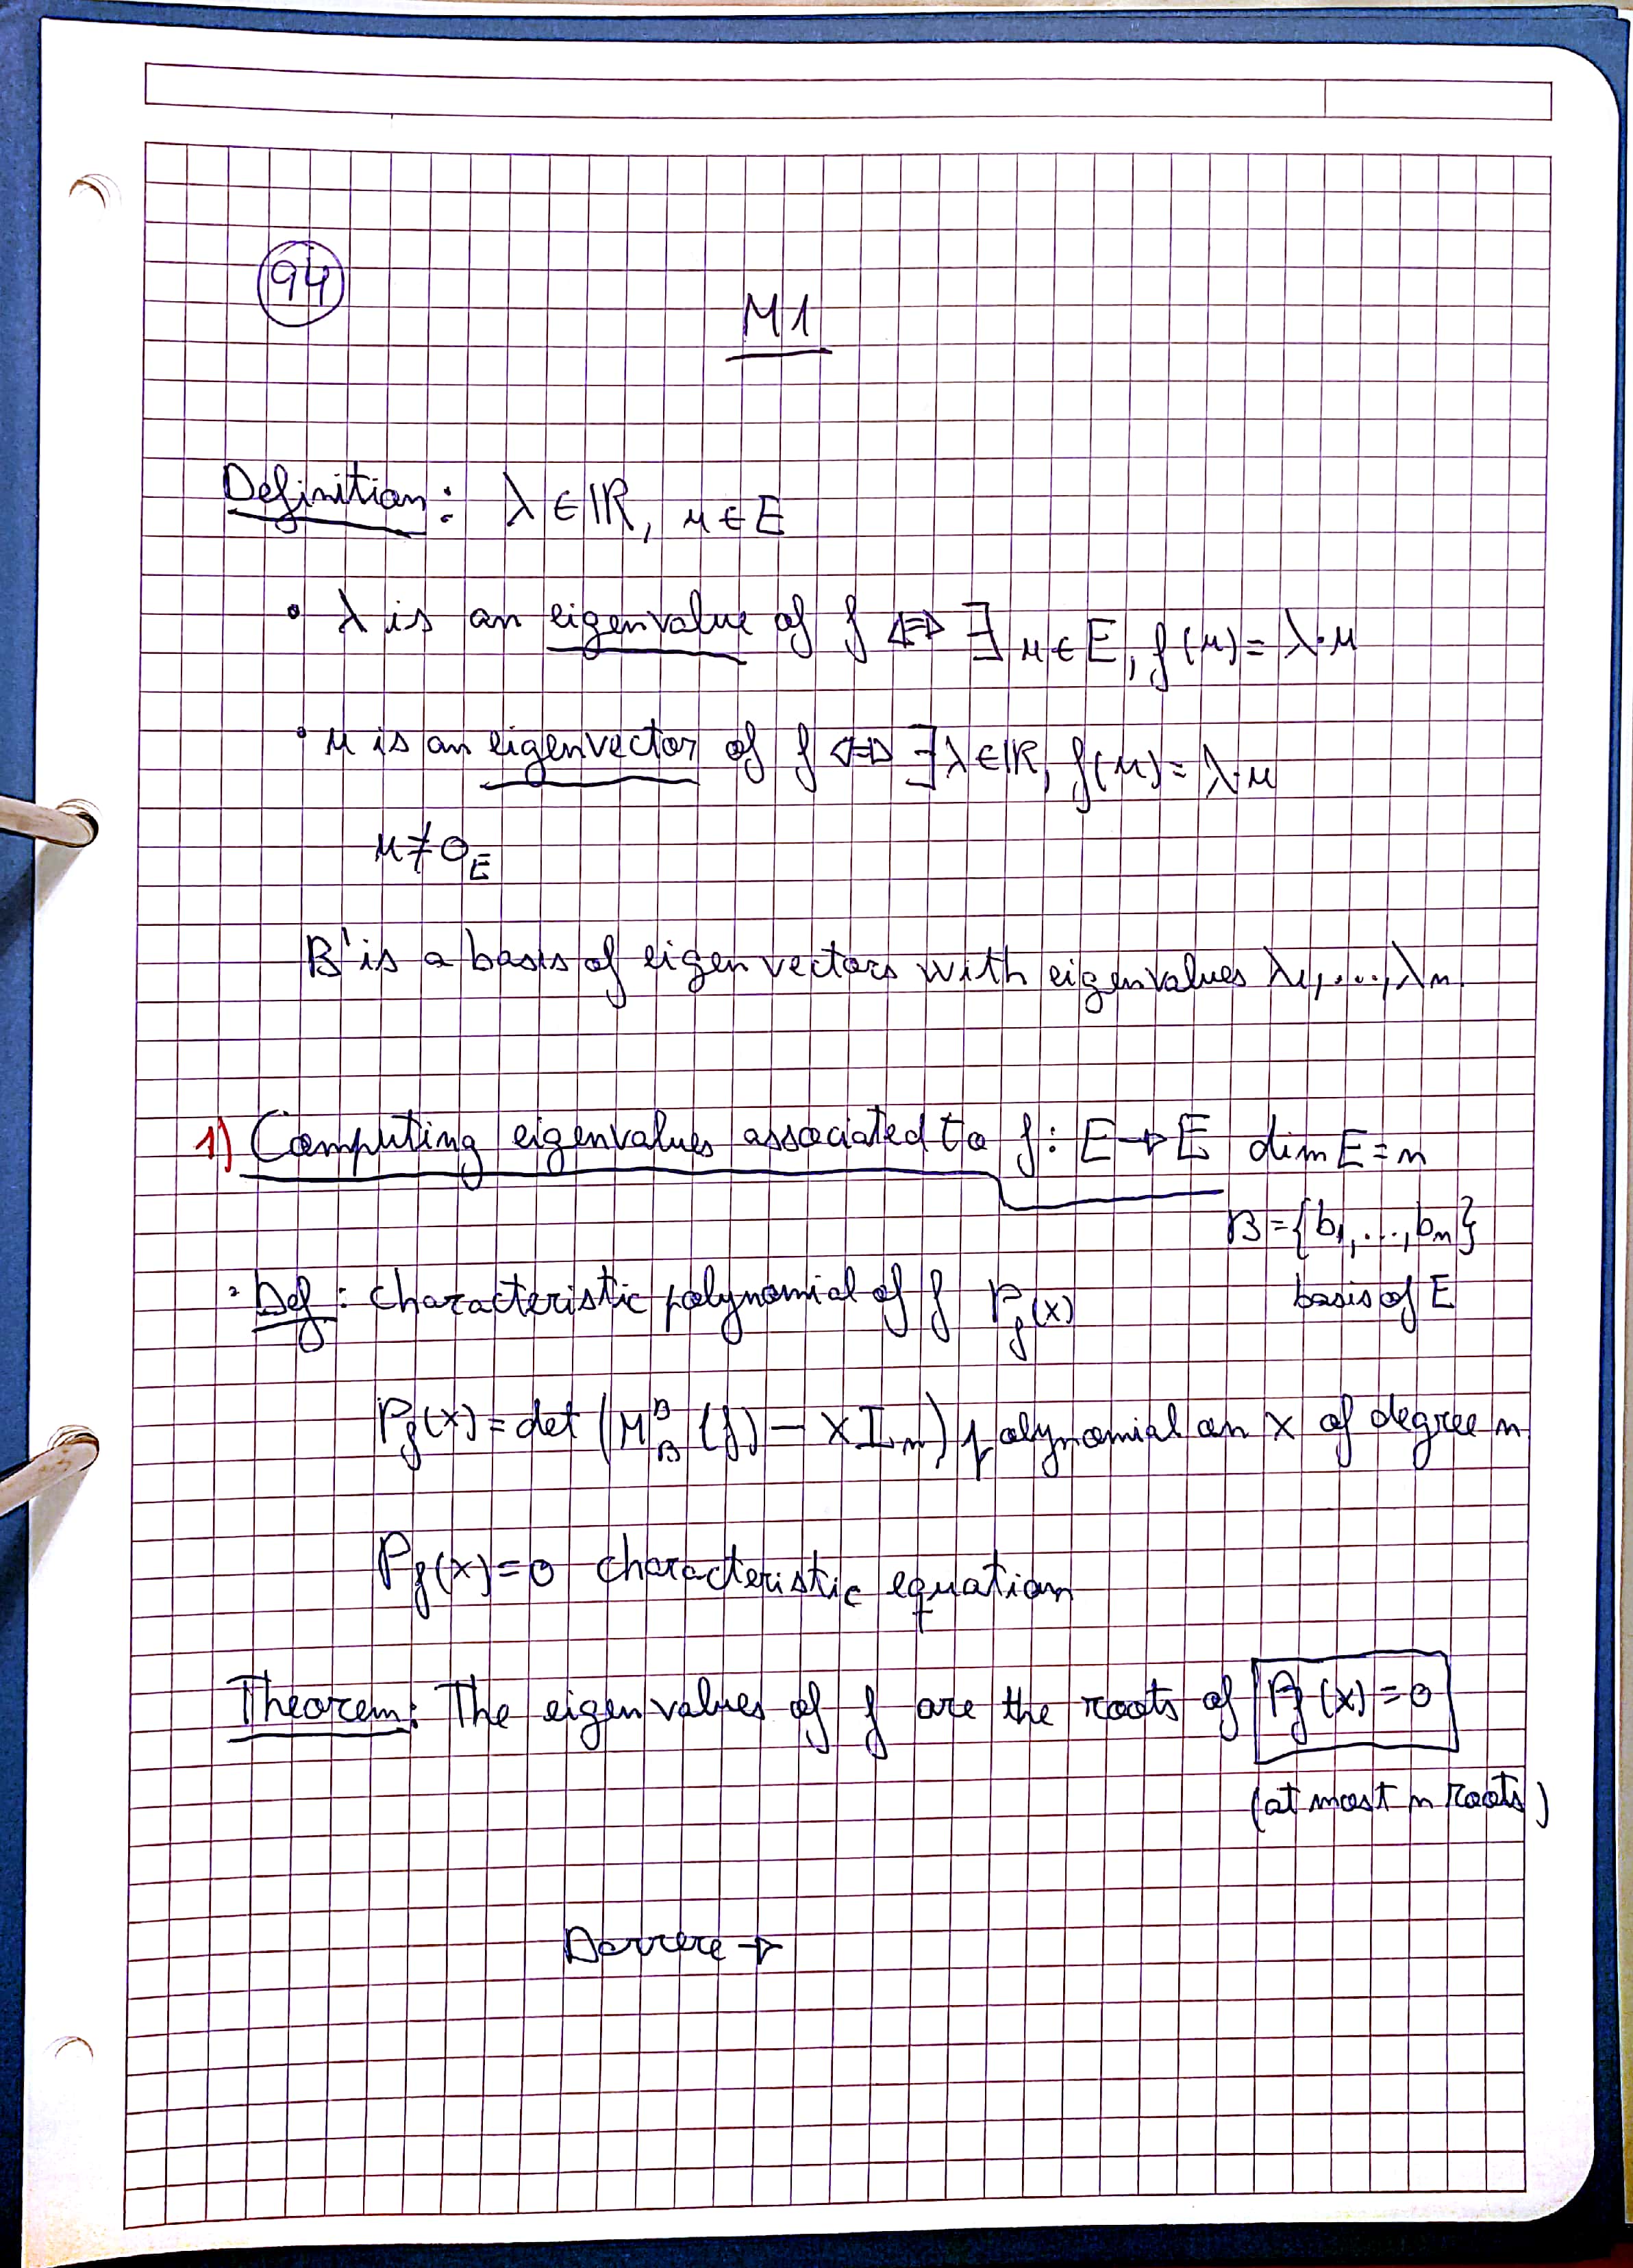 94
M1
Definition: λ ∈ ℝ, u ∈ E
• λ is an eigenvalue of f ⇔ ∃ u ∈ E, f(u) = λ·u
• u is an eigenvector of f ⇔ ∃ λ ∈ ℝ, f(u) = λ·u
u ≠ 0_E
B' is a basis of eigenvectors with eigenvalues λ₁, ..., λₙ.
1) Computing eigenvalues associated to f: E → E dim E = n
B = {b₁, ..., bₙ}
• Def: characteristic polynomial of f P_f(x)
basis of E
P_f(x) = det (M_B^B (f) - x Iₙ) polynomial on x of degree n
P_f(x) = 0 characteristic equation
Theorem: The eigenvalues of f are the roots of P_f(x) = 0
(at most n roots)
Darrere →